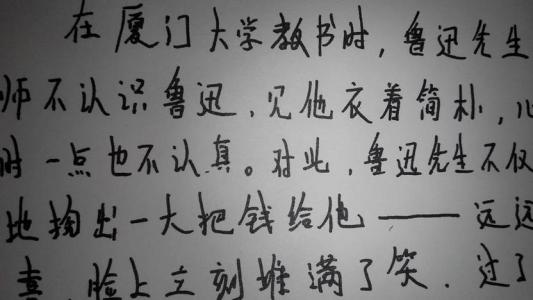 在厦门大学教书时,鲁迅先生
师不认识鲁迅,见他衣着简朴,心
时一点也不认真。对此,鲁迅先生不仅
地掏出一大把钱给他——远远
喜,脸上立刻堆满了笑.过了